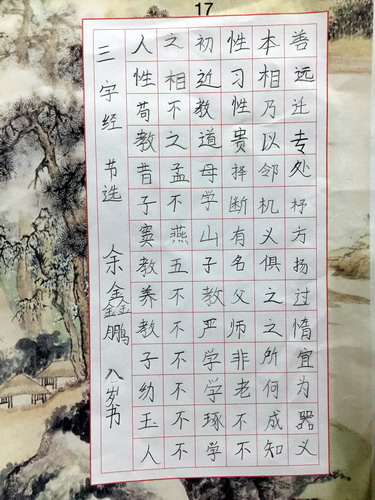 17
人之初性本善
性相近习相远
苟不教性乃迁
教之道贵以专
昔孟母择邻处
子不学断机杼
窦燕山有义方
教五子名俱扬
养不教父之过
教不严师之惰
子不学非所宜
幼不学老何为
玉不琢不成器
人不学不知义
三字经 节选 余鑫鹏 八岁书